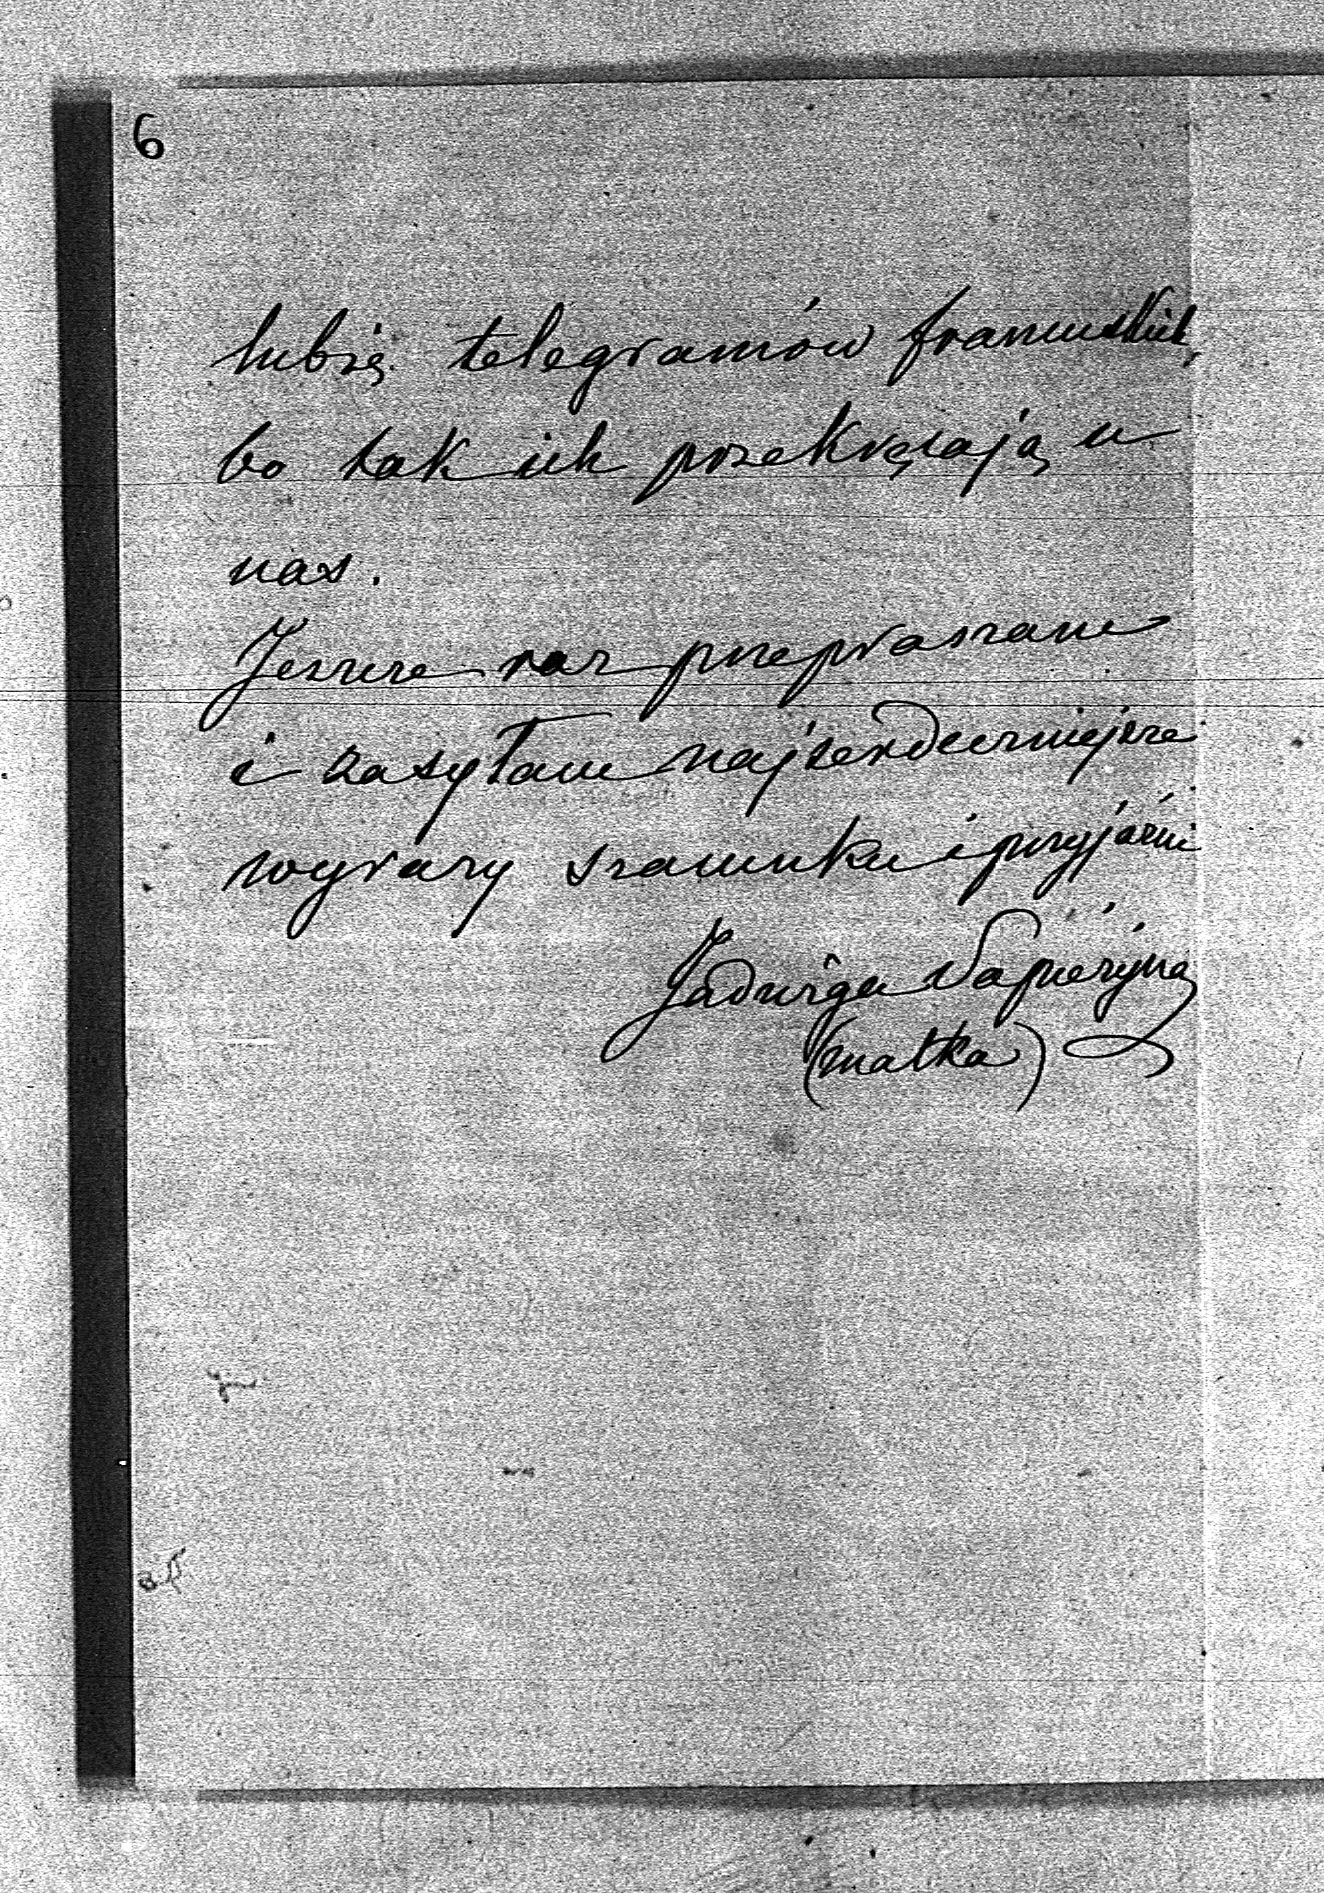 6
lubię telegramów francuskich,
bo tak ich przekręcają u
nas.
Jeszcze raz przepraszam
i zasyłam najserdeczniejsze
wyrazy szacunku i przyjaźni
Jadwiga Sapieżyna
(matka)